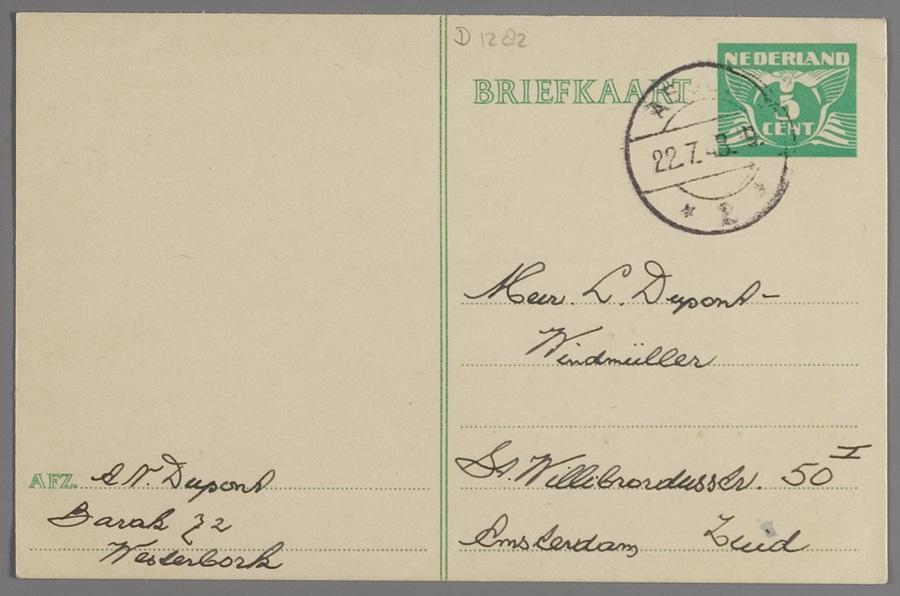 D 1282
BRIEFKAART
NEDERLAND
5
CENT
22.7.43.
2
Mevr. L. Dupont-
Windmüller
St. Willibrordusstr. 50 I
Amsterdam Zuid
AFZ. Dupont
Barak 72
Westerbork